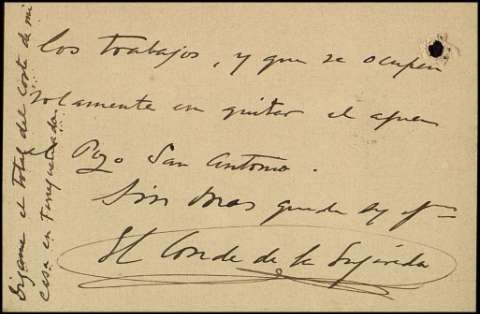 los trabajos, y que se ocupen
solamente en quitar el agua
Pozo San Antonio.
Sin mas queda sy
El Conde de la
Digame el total del coste de mi
casa en